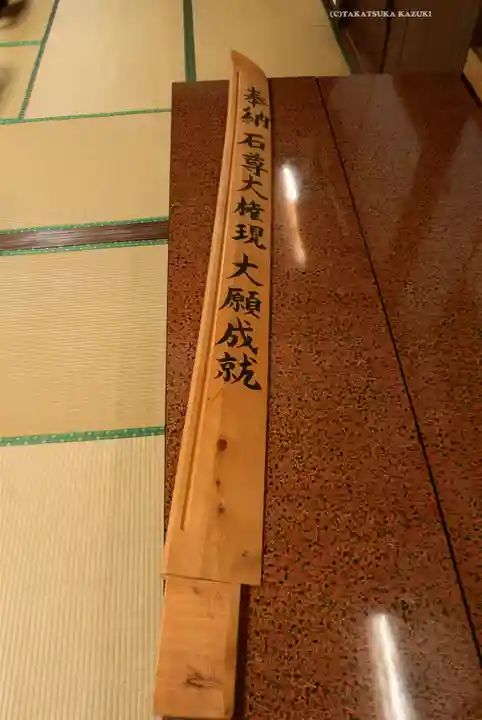 (C)TAKATSUKA KAZUKI
奉納石尊大権現大願成就